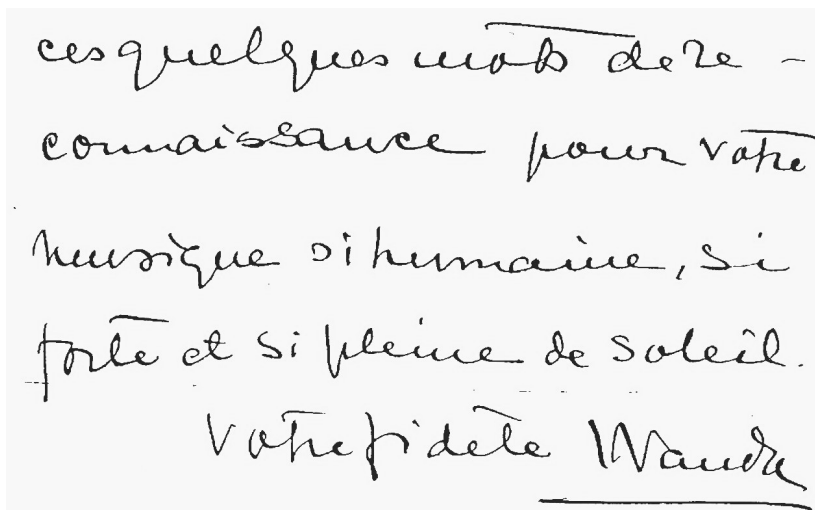 ces quelques mots de re -
connaissance pour votre
musique si humaine, si
forte et si pleine de soleil.
Votre fidèle Wanda